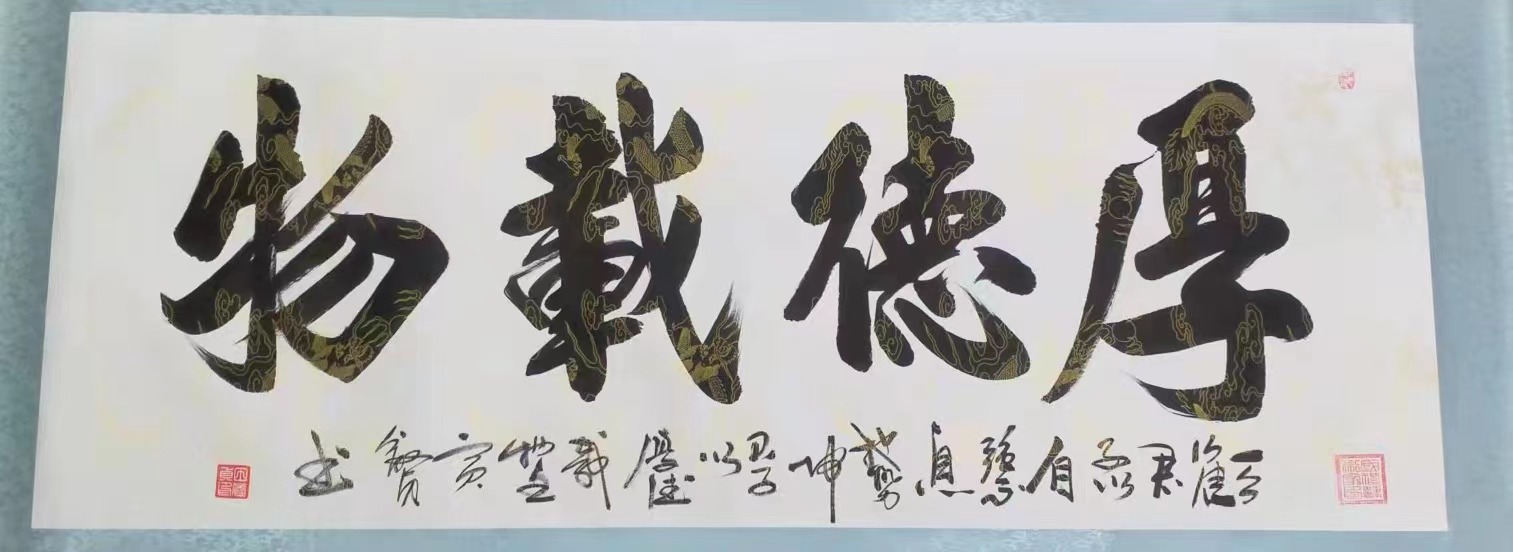 厚德載物
天行健君子以自強不息地勢坤君子以厚德載物壬寅书